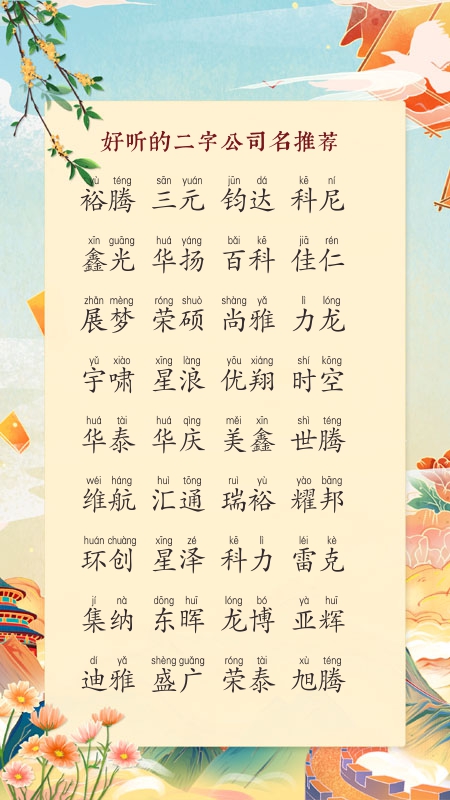 好听的二字公司名推荐
yù téng sān yuán jūn dá kē ní
裕腾 三元 钧达 科尼
xīn guāng huá yáng bǎi kē jiā rén
鑫光 华扬 百科 佳仁
zhǎn mèng róng shuò shàng yǎ lì lóng
展梦 荣硕 尚雅 力龙
yǔ xiào xīng làng yōu xiáng shí kōng
宇啸 星浪 优翔 时空
huá tài huá qìng měi xīn shì téng
华泰 华庆 美鑫 世腾
wéi háng huì tōng ruì yù yào bāng
维航 汇通 瑞裕 耀邦
huán chuàng xīng zé kē lì léi kè
环创 星泽 科力 雷克
jí nà dōng huī lóng bó yà huī
集纳 东晖 龙博 亚辉
dí yǎ shèng guǎng róng tài xù téng
迪雅 盛广 荣泰 旭腾